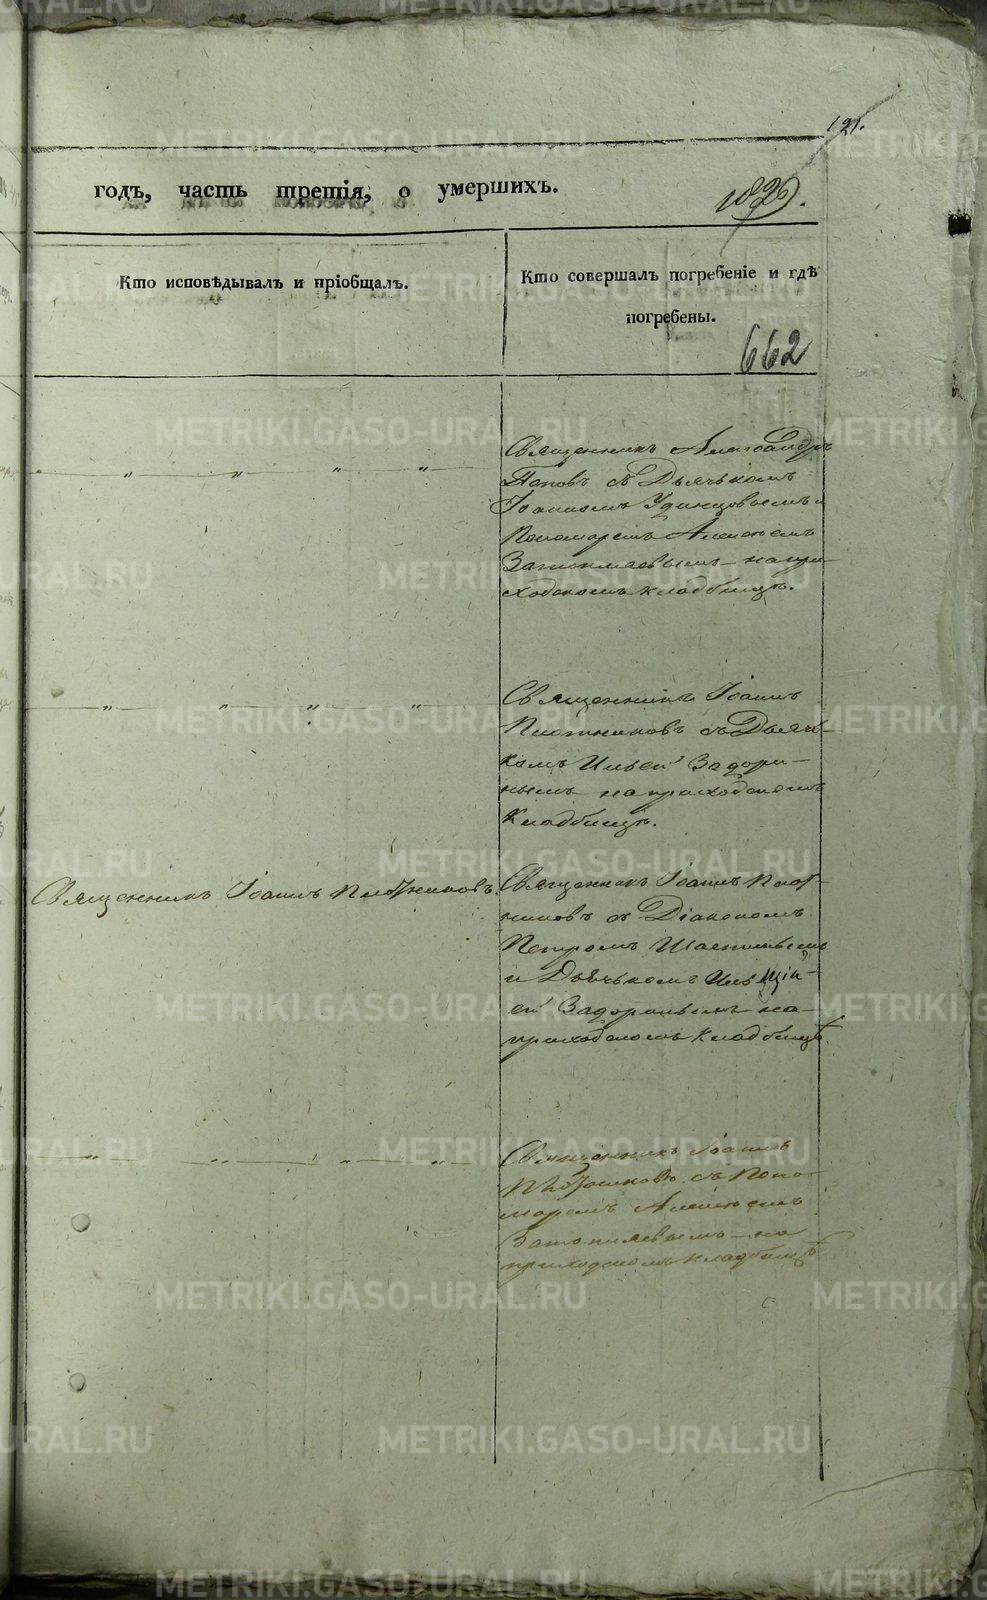 121.
годъ, часть третія, о умершихъ.
1829.
Кто исповѣдывалъ и пріобщалъ.
Кто совершалъ погребеніе и гдѣ
погребены.
662
Священникъ Александръ
Поповъ съ Дьячькомъ
Іоанномъ Удинцовымъ и
Пономаремъ Алексѣемъ
на при-
ходскомъ кладбищѣ.
Священникъ Іоаннъ
Плотниковъ съ Дьячь-
комъ Ильей Задори-
нымъ на приходскомъ
кладбищѣ.
Священникъ Іоаннъ Плотниковъ.
Священникъ Іоаннъ Плот-
никовъ съ Діакономъ
Петромъ
и Дьячькомъ Иль
ей Задоринымъ на
приходскомъ кладбищѣ.
Священникъ Іоаннъ
Плотниковъ съ Поно-
маремъ Алексѣемъ
на
приходскомъ кладбищѣ
METRIKI.GASO-URAL.RU